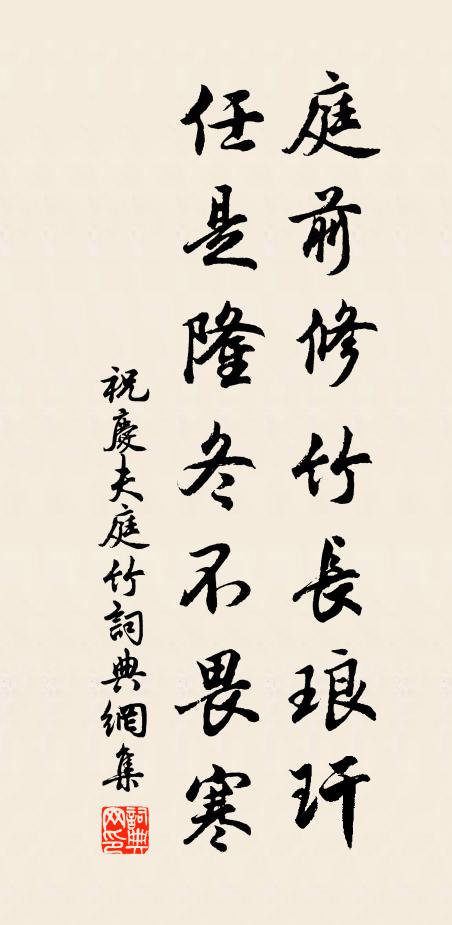 庭前修竹長琅玕
任是隆冬不畏寒
祝慶夫庭竹詞典網集
詞典
网印